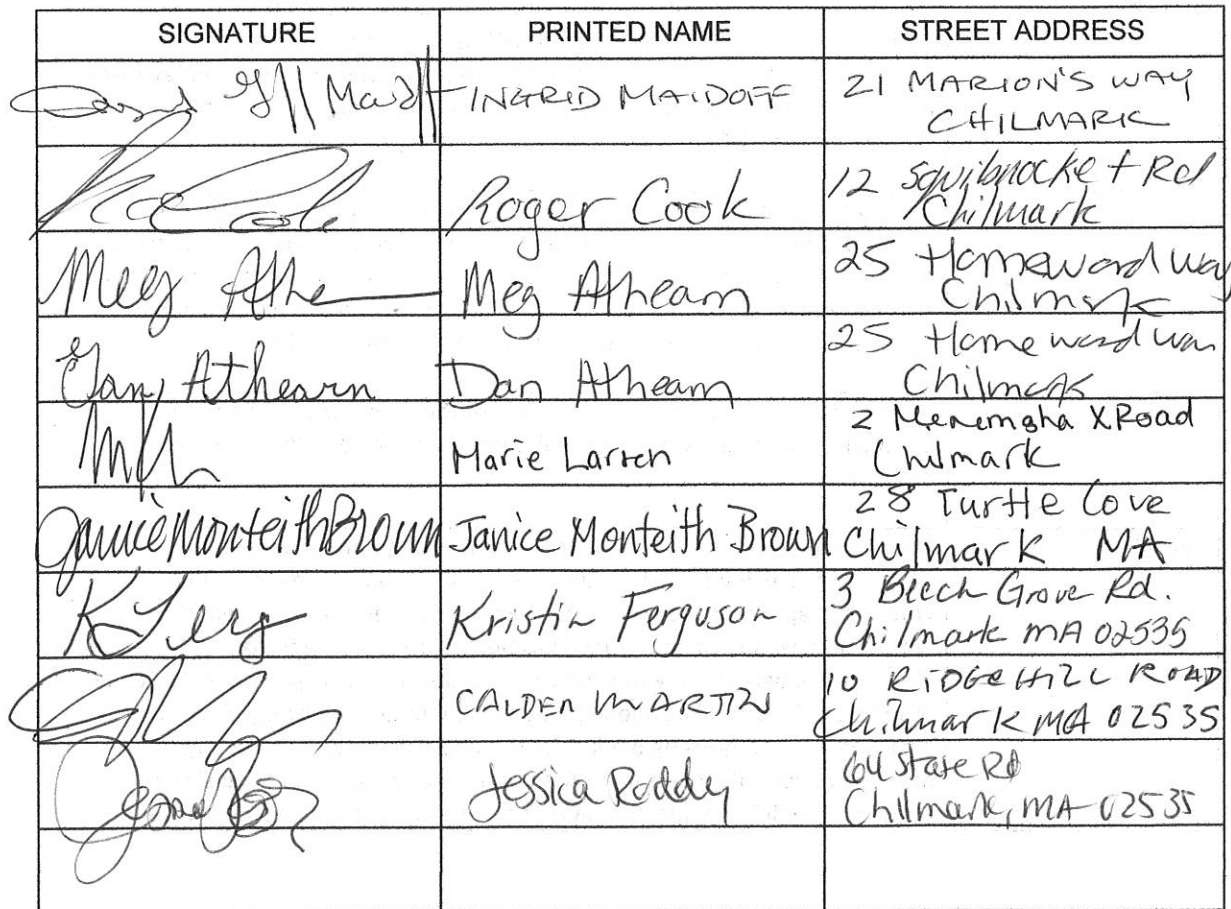 SIGNATURE PRINTED NAME STREET ADDRESS
INGRID MAIDOFF 21 MARION'S WAY
CHILMARK
Roger Cook 12 Squibnocket Rd
Chilmark
Meg Athe Meg Athearn 25 Homeward Way
Chilmark
Athearn Dan Athearn 25 Homeward Way
Chilmark
Marie Larsen 2 Menemsha X Road
Chilmark
Janice Monteith Brown Janice Monteith Brown 28 Turtle Cove
Chilmark MA
Kristin Ferguson 3 Beech Grove Rd.
Chilmark MA 02535
CALDER MARTIN 10 RIDGE HILL ROAD
Chilmark MA 02535
Jessica Roddy 64 State Rd
Chilmark, MA 02535